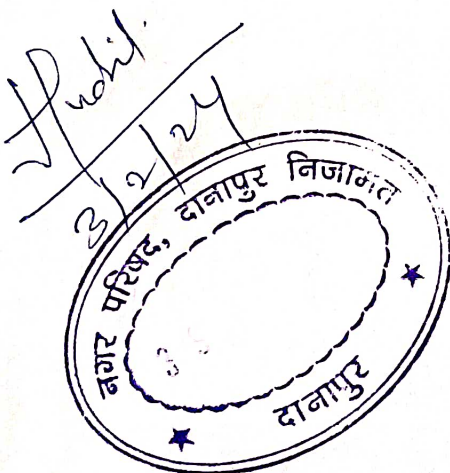 3/2/24
नगर परिषद, दानापुर निजामत
दानापुर